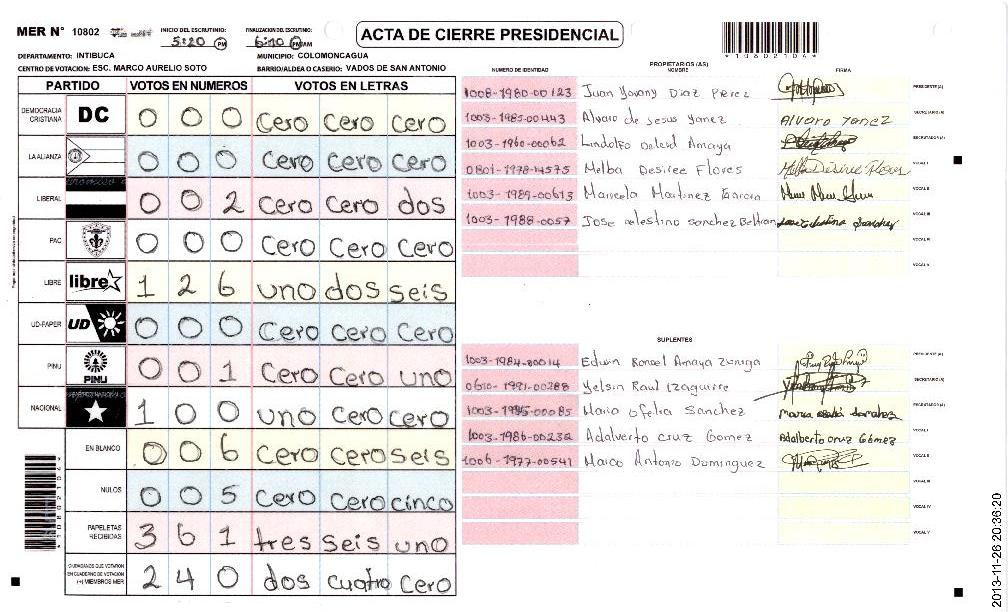 MER N° 10802
INICIO DEL ESCRUTINIO: 5:20 PM
FINALIZACION DEL ESCUTINIO: 6:10 PM AM
ACTA DE CIERRE PRESIDENCIAL
*10802106*
DEPARTAMENTO: INTIBUCA
MUNICIPIO: COLOMONCAGUA
CENTRO DE VOTACION: ESC. MARCO AURELIO SOTO
BARRIO/ALDEA O CASERIO: VADOS DE SAN ANTONIO
PARTIDO VOTOS EN NUMEROS VOTOS EN LETRAS
DEMOCRACIA CRISTIANA DC 0 0 0 Cero Cero Cero
LA ALIANZA 0 0 0 Cero Cero Cero
LIBERAL 0 0 2 Cero Cero dos
PAC 0 0 0 Cero Cero Cero
LIBRE libre 1 2 6 uno dos seis
UD-FAPER UD 0 0 0 Cero Cero Cero
PINU PINU 0 0 1 Cero Cero uno
NACIONAL 1 0 0 uno Cero Cero
EN BLANCO 0 0 6 Cero Cero seis
NULOS 0 0 5 Cero Cero cinco
PAPELETAS RECIBIDAS 3 6 1 tres seis uno
CIUDADANOS QUE VOTARON EN CUADERNO DE VOTACION (+) MIEMBROS MER 2 4 0 dos cuatro Cero
PROPIETARIOS (AS)
NUMERO DE IDENTIDAD NOMBRE FIRMA
1008-1980-00123 Juan Yovany Diaz Perez PRESIDENTE (A)
1003-1985-00443 Alvaro de jesus Yanez Alvaro Yanez SECRETARIO (A)
1003-1960-00062 Lindolfo Amaya ESCRUTADOR (A)
0801-1978-14575 Melba Desiree Flores Melba Desiree Flores VOCAL I
1003-1989-00613 Marcela Martinez Garcia VOCAL II
1003-1988-0057 Jose celestino Sanchez Beltran VOCAL III
VOCAL IV
VOCAL V
SUPLENTES
1003-1984-00014 Edwin Amaya Zuniga PRESIDENTE (A)
0610-1991-00288 Yelsin Raul Izaguirre SECRETARIO (A)
1003-1985-00085 Maria Ofelia Sanchez ESCRUTADOR (A)
1003-1986-00232 Adalverto Cruz Gomez Adalberto cruz Gómez VOCAL I
1006-1977-00541 Marco Antonio Dominguez VOCAL II
VOCAL III
VOCAL IV
VOCAL V
2013-11-26 20:36:20